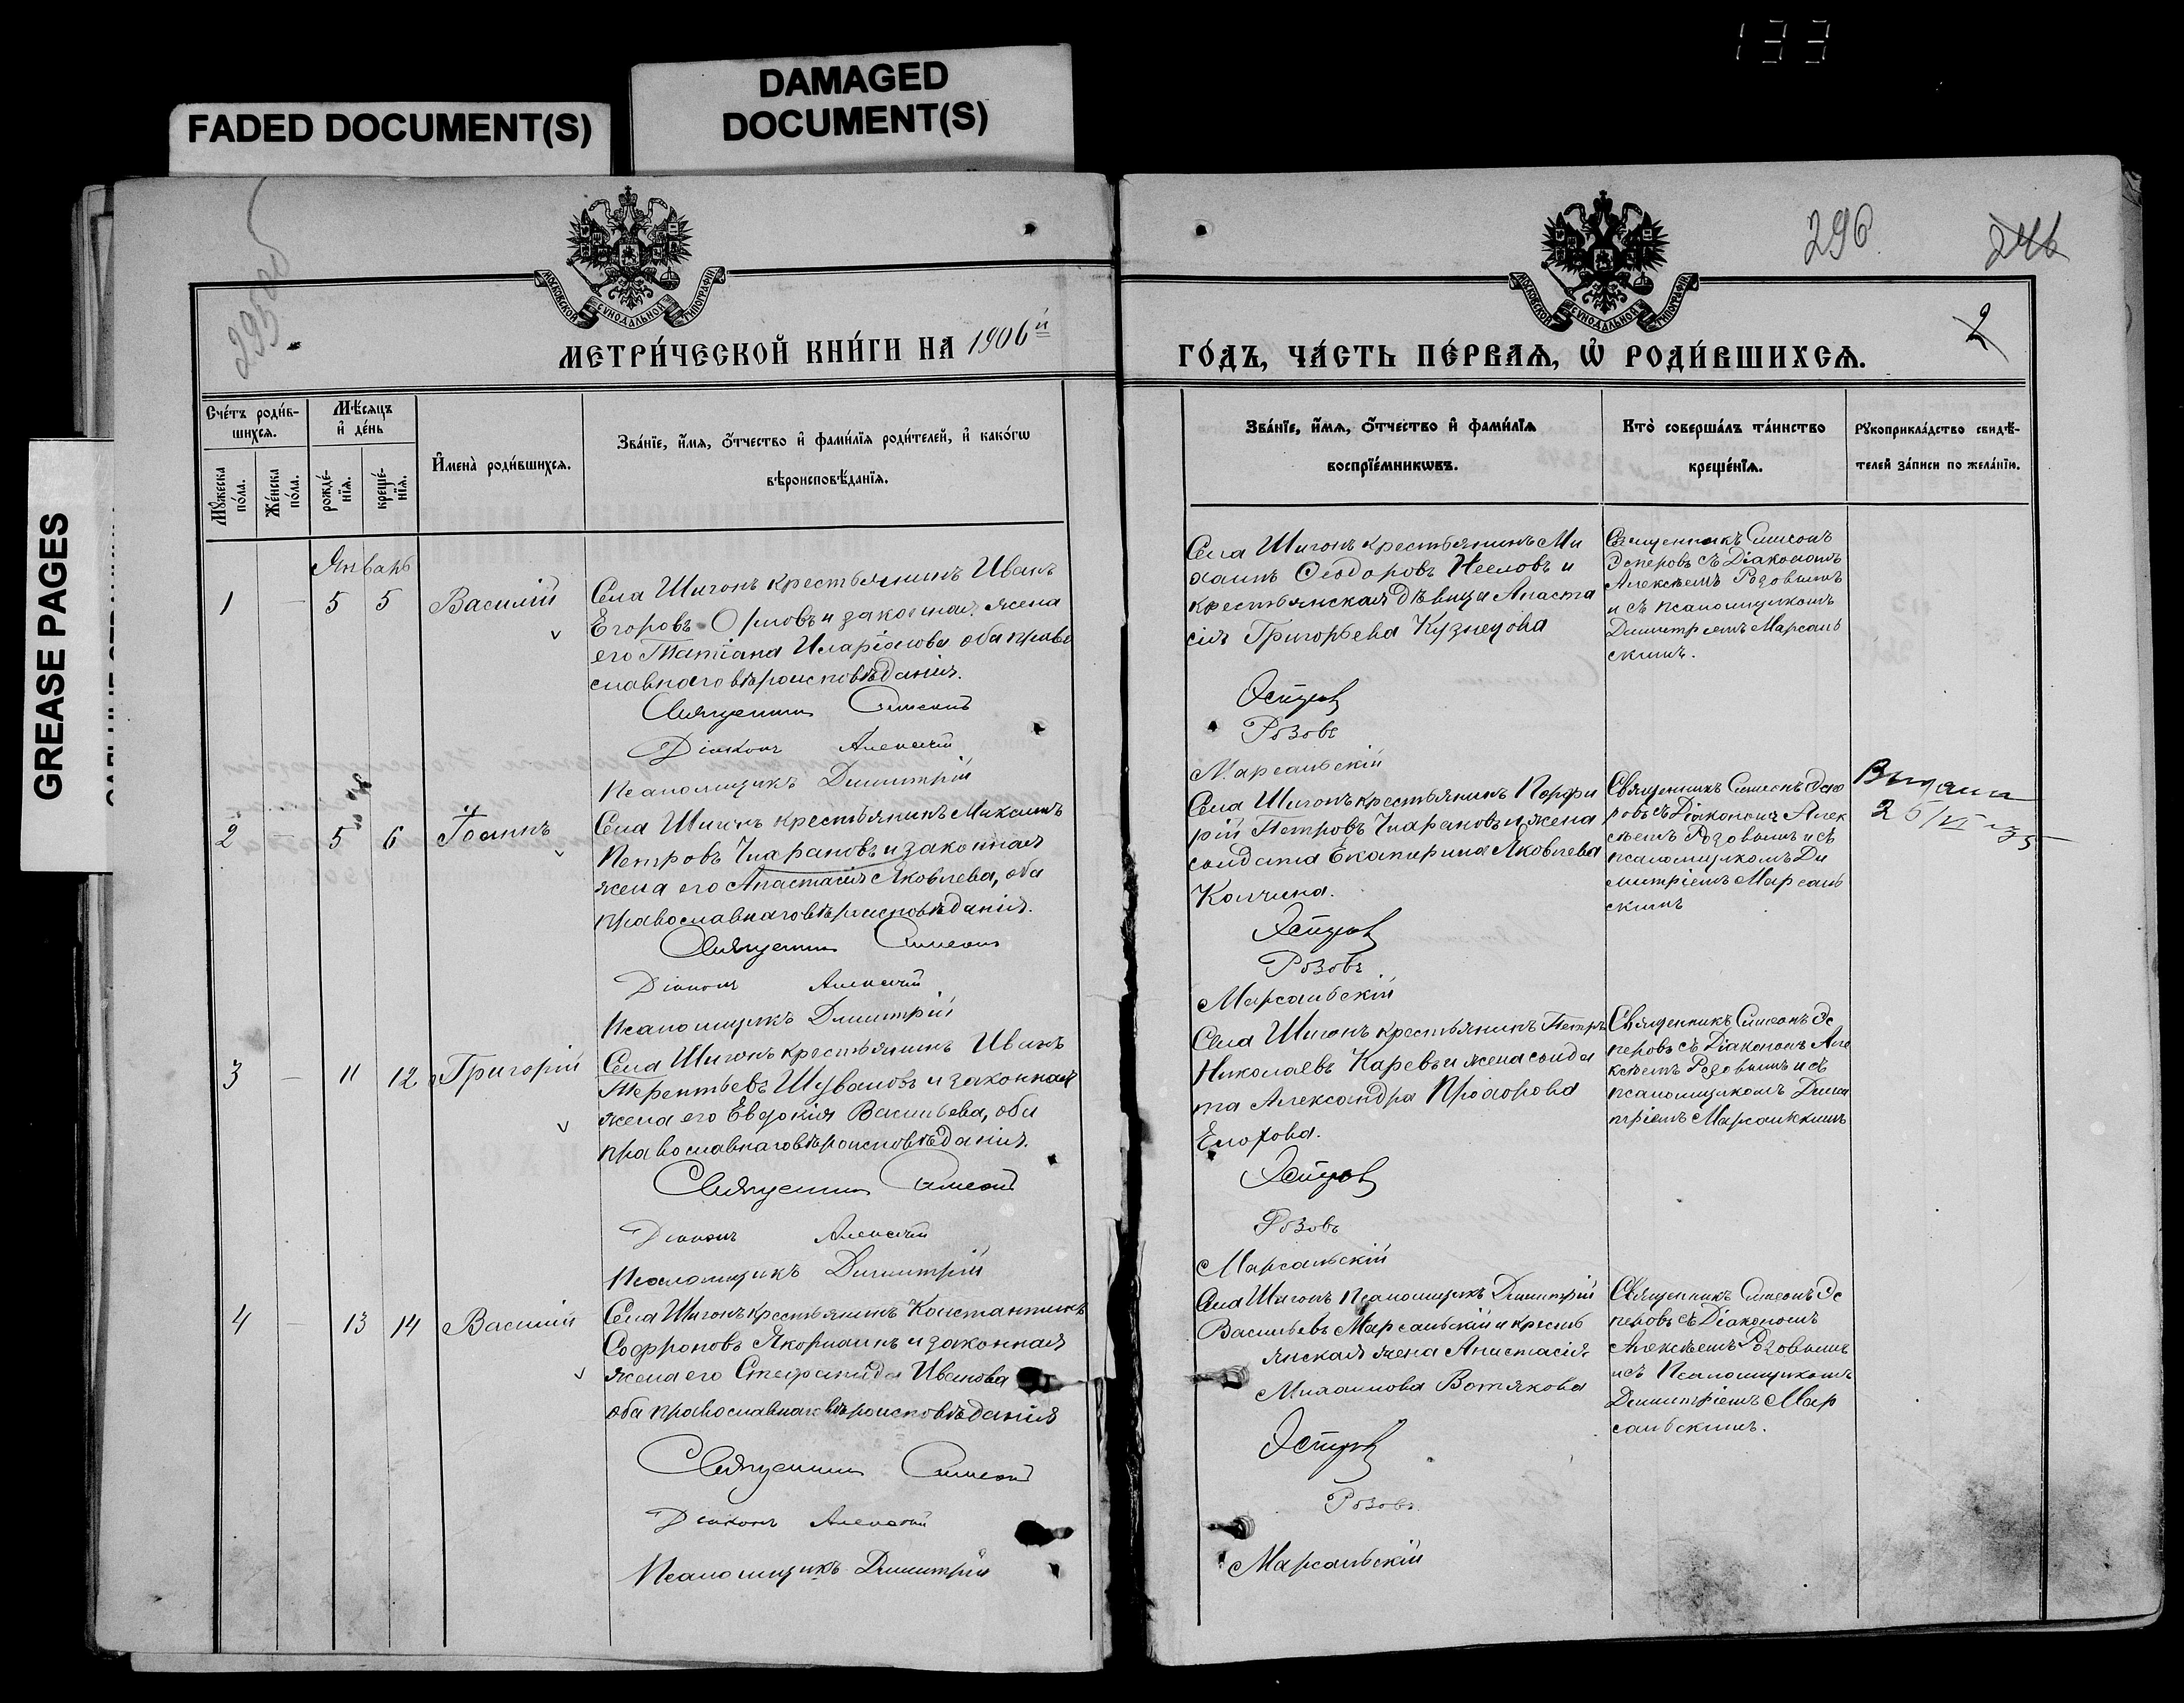 133
FADED DOCUMENT(S)
DAMAGED
DOCUMENT(S)
GREASE PAGES
296
246
2
295
МОСКОВСКОЙ СѴНОДАЛЬНОЙ ТИПОГРАФІИ
МОСКОВСКОЙ СѴНОДАЛЬНОЙ ТИПОГРАФІИ
МЕТРИ́ЧЕСКОЙ КНИ́ГИ НА 1906й
ГО́ДЪ, ЧА́СТЬ ПЕ́РВАѦ, Ѡ҆ РОДИ́ВШИХСѦ.
Сче́тъ роди́в-
шихсѧ.
Мѣ́сѧцъ
и҆ де́нь
Мꙋ́жеска
по́ла.
Же́нска
по́ла.
рожде́-
нїѧ.
креще́-
нїѧ.
И҆мена̀ роди́вшихсѧ.
Зва́нїе, и҆́мѧ, ѻ҆́тчество и҆ фами́лїѧ роди́телей, и҆ како́гѡ
вѣроисповѣ́данїѧ.
Зва́нїе, и҆́мѧ, ѻ҆́тчество и҆ фами́лїѧ
воспрїе́мникѡвъ.
Кто̀ соверша́лъ та́инство
креще́нїѧ.
Рꙋкоприкла́дство свидѣ́-
телей за́писи по жела́нїю.
Январь
1 — 5 5 Василій
Села Шигонъ крестьянинъ Иванъ
Егоровъ Орловъ и законная жена
его Татіана Иларіонова оба право
славнаго вѣроисповѣданія.
Священникъ Симеонъ
Діаконъ Алексѣй
Псаломщикъ Димитрій
Села Шигонъ крестьянинъ Ми
хаилъ Ѳеодоровъ Нееловъ и
крестьянская дѣвица Анаста
сія Григорьева Кузнецова
Эсперовъ
Розовъ
Марсальскій
Священникъ Симеонъ
Эсперовъ съ Діакономъ
Алексѣемъ Розовымъ
и съ псаломщикомъ
Димитріемъ Марсаль
скимъ.
2 — 5 6 Іоаннъ
Села Шигонъ крестьянинъ Максимъ
Петровъ Чиарановъ и законная
жена его Анастасія Яковлева, оба
православнаго вѣроисповѣданія.
Священникъ Симеонъ
Діаконъ Алексѣй
Псаломщикъ Димитрій
Села Шигонъ крестьянинъ Порфи
рій Петровъ Чиарановъ и жена
солдата Екатерина Яковлева
Колчина.
Эсперовъ
Розовъ
Марсальскій
Священникъ Симеонъ Эспе
ровъ съ Діакономъ Алек
сѣемъ Розовымъ и съ
псаломщикомъ Ди
митріемъ Марсаль
скимъ
Выдана
26/VI-35
3 — 11 12 Григорій
Села Шигонъ крестьянинъ Иванъ
Терентьевъ Шуваловъ и законная
жена его Евдокія Васильева, оба
православнаго вѣроисповѣданія.
Священникъ Симеонъ
Діаконъ Алексѣй
Псаломщикъ Димитрій
Села Шигонъ крестьянинъ Петръ
Николаевъ Каревъ и жена солда
та Александра Прохорова
Елохова.
Эсперовъ
Розовъ
Марсальскій
Священникъ Симеонъ Эс
перовъ съ Діакономъ Але
ксѣемъ Розовымъ и съ
псаломщикомъ Дими
тріемъ Марсальскимъ
4 — 13 14 Василій
Села Шигонъ крестьянинъ Константинъ
Софроновъ Якорнаинъ и законная
жена его Стефанида Иванова
оба православнаго вѣроисповѣданія
Священникъ Симеонъ
Діаконъ Алексѣй
Псаломщикъ Димитрій
Села Шигонъ Псаломщикъ Димитрій
Васильевъ Марсальскій и кресть
янская жена Анастасія
Михаилова Вотякова
Эсперовъ
Розовъ
Марсальскій
Священникъ Симеонъ Эс
перовъ съ Діакономъ
Алексѣемъ Розовымъ
и съ Псаломщикомъ
Димитріемъ Мар
сальскимъ.